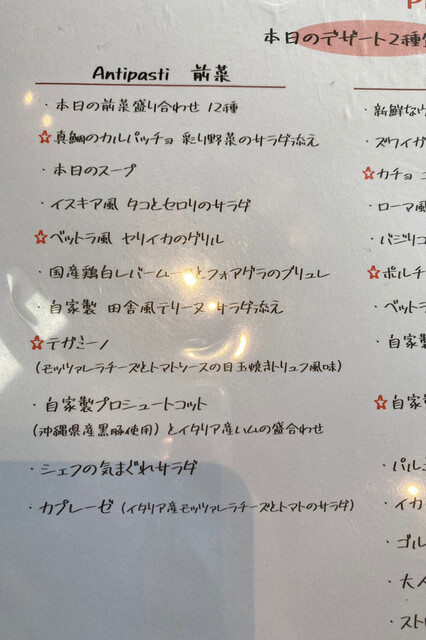 本日のデザート2種
Antipasti 前菜
・本日の前菜盛り合わせ 12種
☆真鯛のカルパッチョ 彩り野菜のサラダ添え
・本日のスープ
・イスキア風 タコとセロリのサラダ
☆ベットラ風 ヤリイカのグリル
・国産鶏白レバームースとフォアグラのブリュレ
・自家製 田舎風テリーヌ サラダ添え
☆テガミーノ
(モッツァレラチーズとトマトソースの目玉焼きトリュフ風味)
・自家製プロシュートコット
(沖縄県産黒豚使用)とイタリア産ハムの盛合わせ
・シェフの気まぐれサラダ
・カプレーゼ(イタリア産モッツァレラチーズとトマトのサラダ)
・新鮮な
・ズワイガ
☆カチョ
・ローマ風
・バジリコ
☆ポルチ
・ベットラ
・自家製
☆自家
・パル
・イカ
・ゴル
・大人
・スト